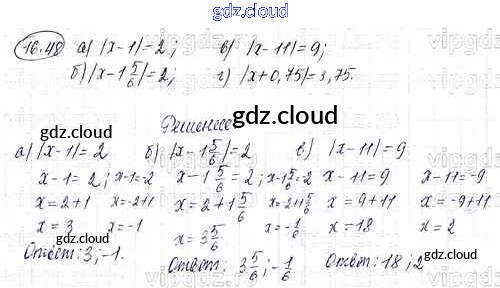 gdz.cloud
16.48 а) |x-1|=2; в) |x-11|=9;
б) |x-1 5/6|=2; г) |x+0,75|=3,75.
gdz.cloud
Решение
gdz.cloud
а) |x-1|=2 б) |x-1 5/6|=2 в) |x-11|=9
x-1=2; x-1=-2 x-1 5/6=2; x-1 5/6=-2 x-11=9 x-11=-9
x=2+1 x=-2+1 x=2+1 5/6 x=-2+1 5/6 x=9+11 x=-9+11
x=3 x=-1 x=3 5/6 x=-1/6 x=18 x=2
gdz.cloud
Ответ: 3; -1. Ответ: 3 5/6; -1/6 Ответ: 18; 2
gdz.cloud